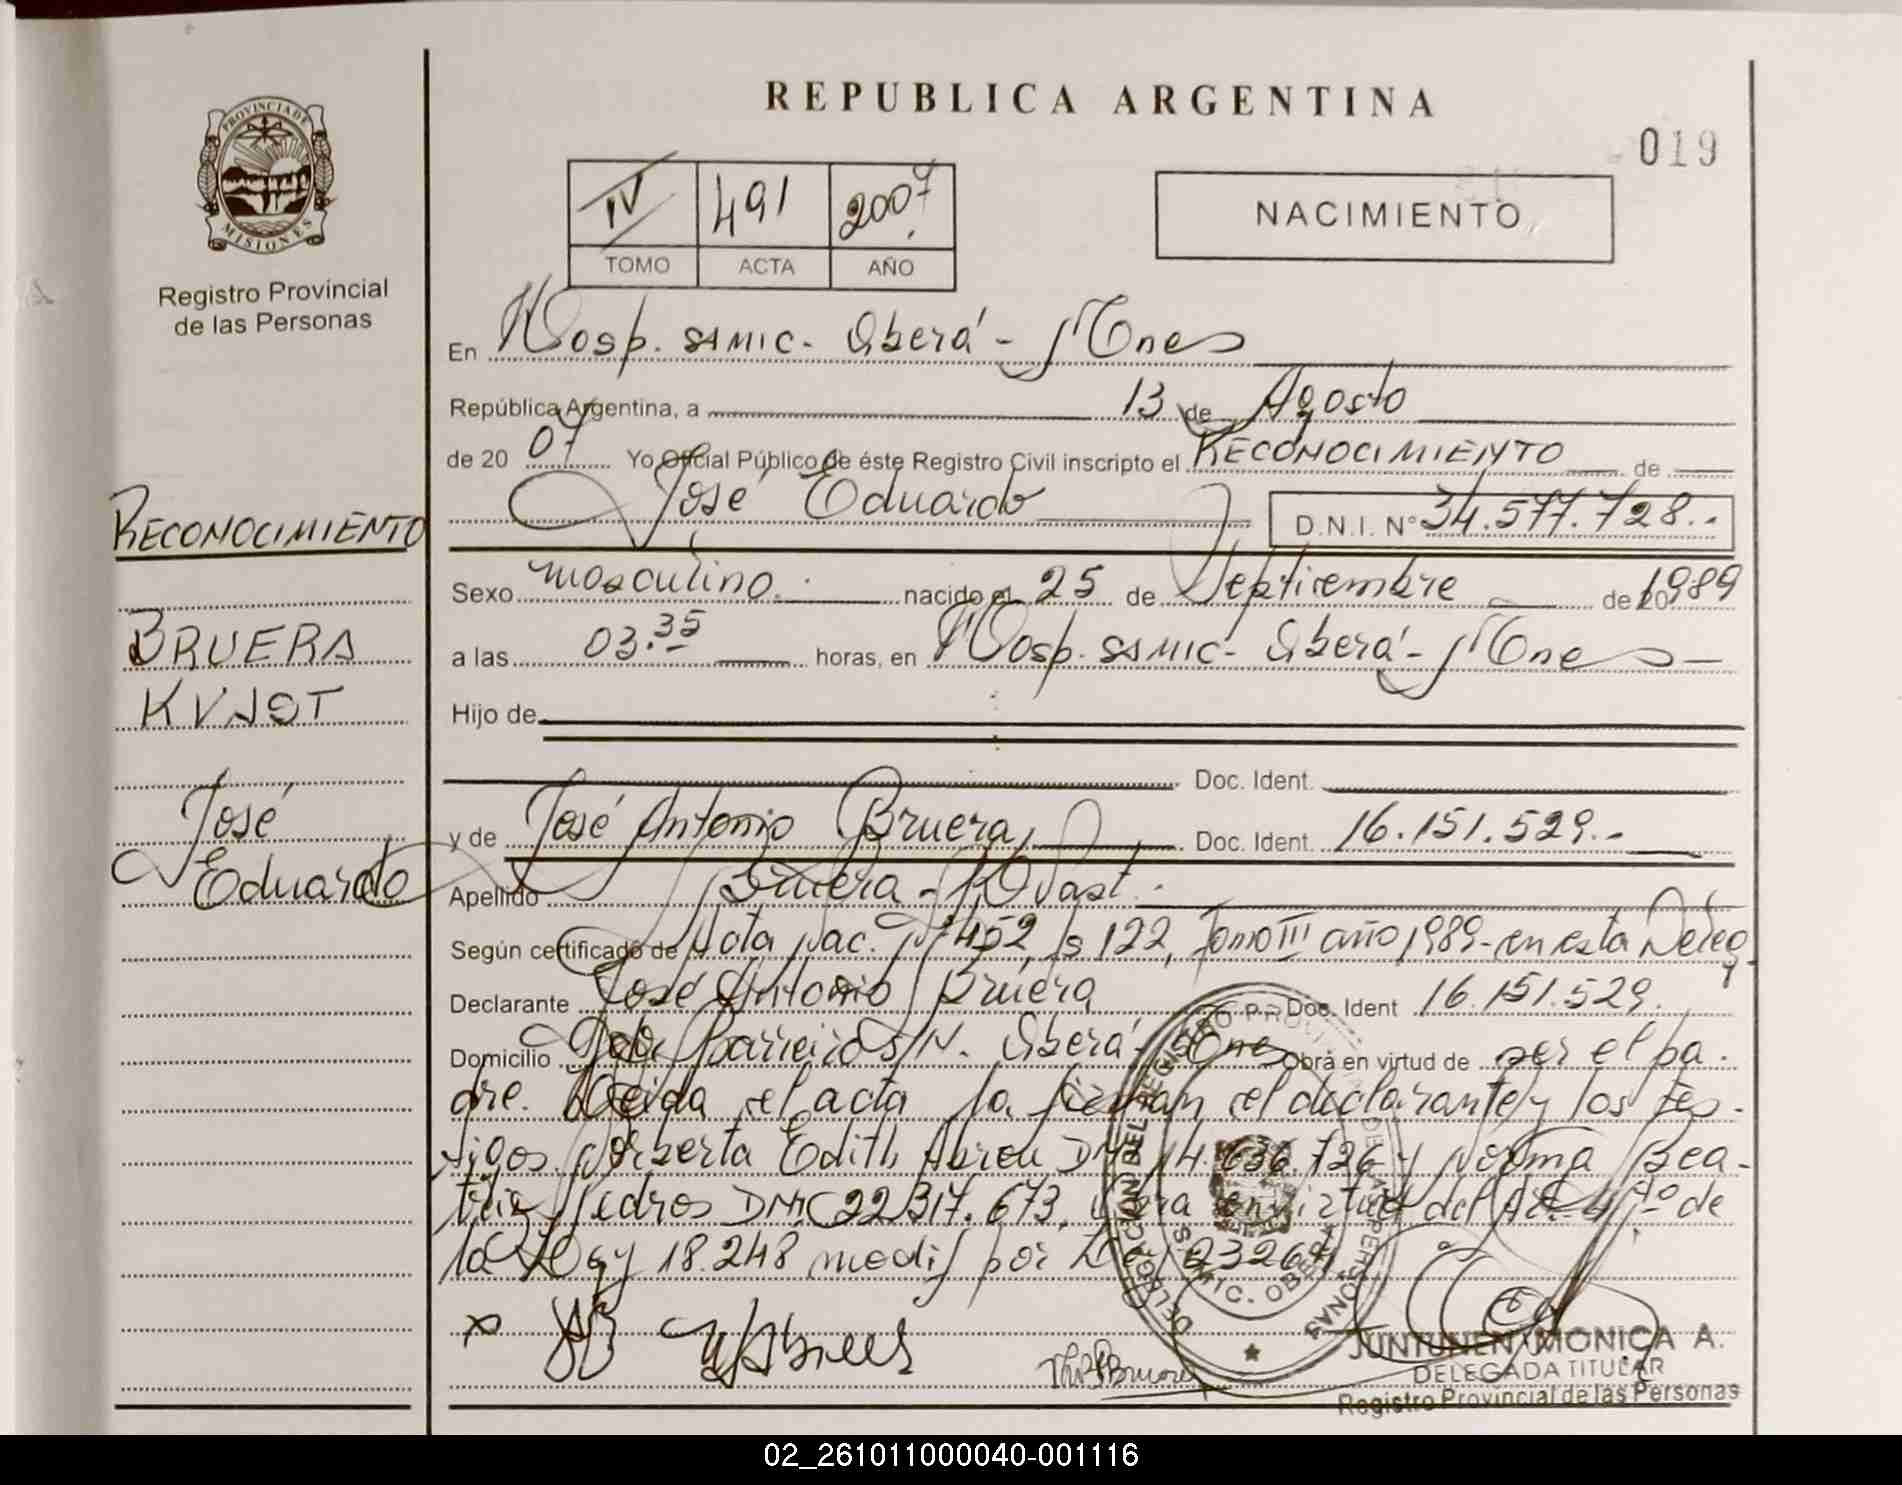 REPUBLICA ARGENTINA
019
PROVINCIA DE MISIONES
Registro Provincial
de las Personas
IV 491 2007
TOMO ACTA AÑO
NACIMIENTO
En Hosp. SAMIC. Oberá - Mnes
República Argentina, a 13 de Agosto
de 20 07 Yo Oficial Público de éste Registro Civil inscripto el RECONOCIMIENTO de
José Eduardo D.N.I. N° 34.577.728.-
RECONOCIMIENTO
BRUERA
KVAST
José
Eduardo
Sexo masculino. nacido el 25 de Septiembre de 20 1989
a las 03.35 horas, en Hosp. SAMIC - Oberá - Mnes
Hijo de
Doc. Ident.
y de José Antonio Bruera, Doc. Ident. 16.151.529.-
Apellido Bruera - Kvast.
Según certificado de Acta Nac. N° 452, Fs 122, Tomo III año 1989 - en esta Deleg.
Declarante José Antonio Bruera Doc. Ident 16.151.529.
Domicilio Barreiro S/N. Oberá - Mnes Obra en virtud de ser el pa-
dre. Leida el acta la firman el declarante y los tes-
tigos Norberta Edith Abreu DNI 14.636.726 y Norma Bea-
triz DNI 22.317.673, Obra en virtud del Art. de
la Ley 18.248 modif por Ley 23264
DELEGACION DEL REGISTRO PROVINCIAL DE LAS PERSONAS
SAMIC. OBERA
JUNTUNEN MONICA A.
DELEGADA TITULAR
Registro Provincial de las Personas
02_261011000040-001116